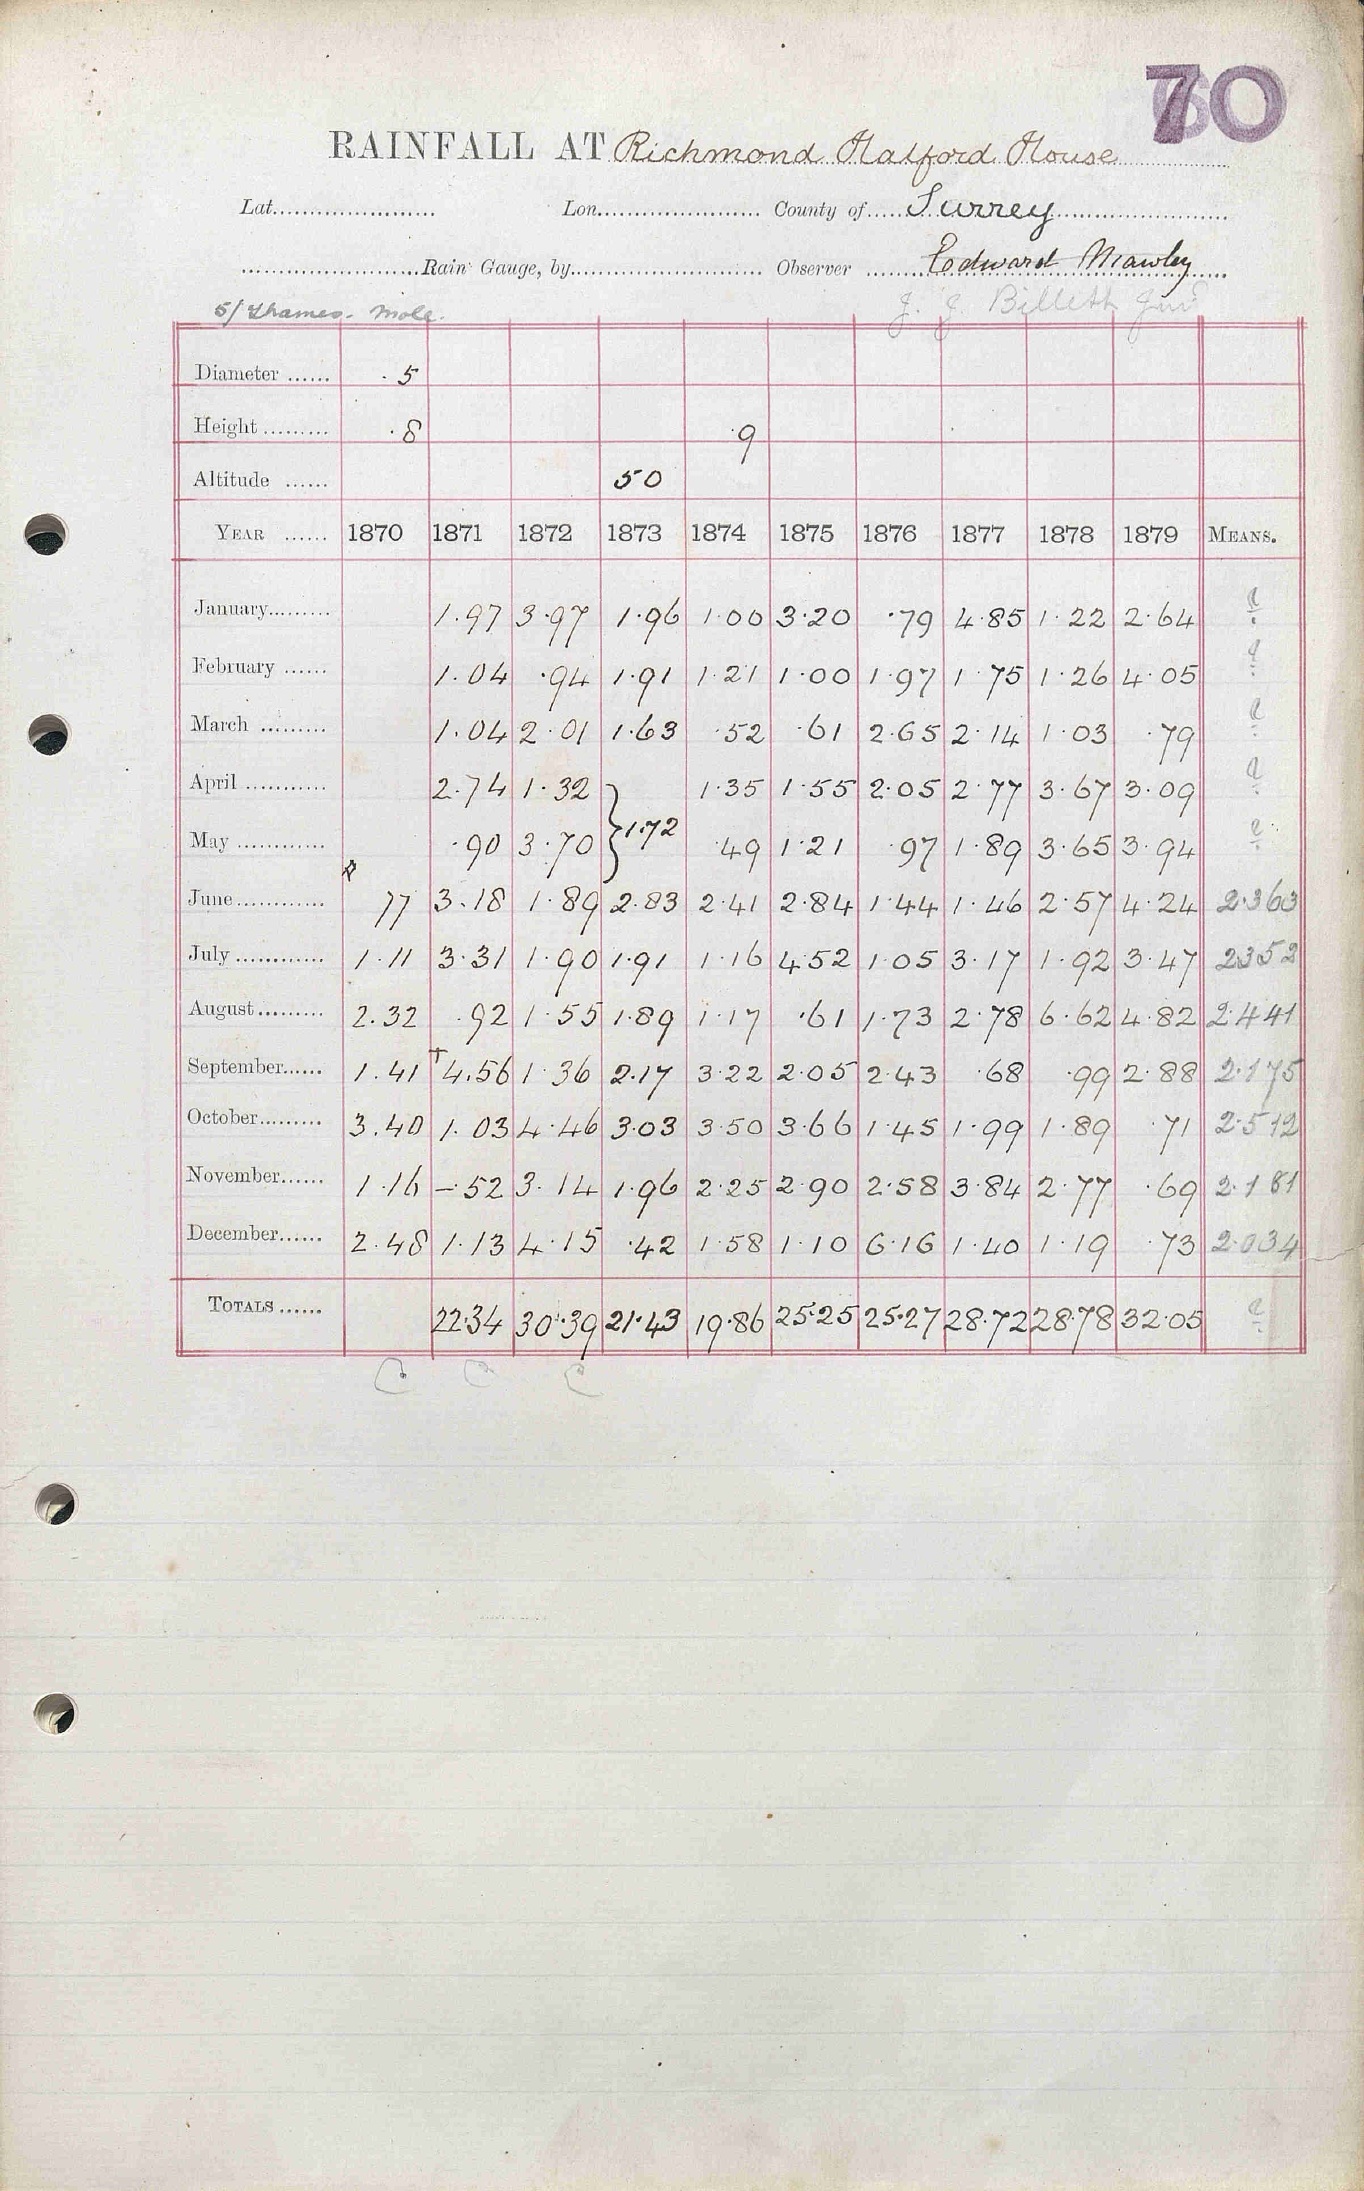 70
RAINFALL AT Richmond Halford House
Lat...................... Lon...................... County of..... Surrey
........................Rain Gauge, by.......................... Observer ....... Edward Mawley
5/ Thames. Mole. J. J. Billett Jun
Diameter ...... .5
Height ......... .8 .9
Altitude ...... 50
YEAR ...... 1870 1871 1872 1873 1874 1875 1876 1877 1878 1879 MEANS.
January......... 1.97 3.97 1.96 1.00 3.20 .79 4.85 1.22 2.64 ?
February ...... 1.04 .94 1.91 1.21 1.00 1.97 1.75 1.26 4.05 ?
March ......... 1.04 2.01 1.63 .52 .61 2.65 2.14 1.03 .79 ?
April ........... 2.74 1.32 1.35 1.55 2.05 2.77 3.67 3.09 ?
May ............ .90 3.70 } 1.72 .49 1.21 .97 1.89 3.65 3.94 ?
June............ 77 3.18 1.89 2.83 2.41 2.84 1.44 1.46 2.57 4.24 2.363
July ............ 1.11 3.31 1.90 1.91 1.16 4.52 1.05 3.17 1.92 3.47 2352
August......... 2.32 .92 1.55 1.89 1.17 .61 1.73 2.78 6.62 4.82 2.441
September...... 1.41 †4.56 1.36 2.17 3.22 2.05 2.43 .68 .99 2.88 2.175
October......... 3.40 1.03 4.46 3.03 3.50 3.66 1.45 1.99 1.89 .71 2.512
November...... 1.16 -.52 3.14 1.96 2.25 2.90 2.58 3.84 2.77 .69 2.181
December...... 2.48 1.13 4.15 .42 1.58 1.10 6.16 1.40 1.19 .73 2.034
TOTALS ...... 22.34 30.39 21.43 19.86 25.25 25.27 28.72 28.78 32.05 ?
C C C